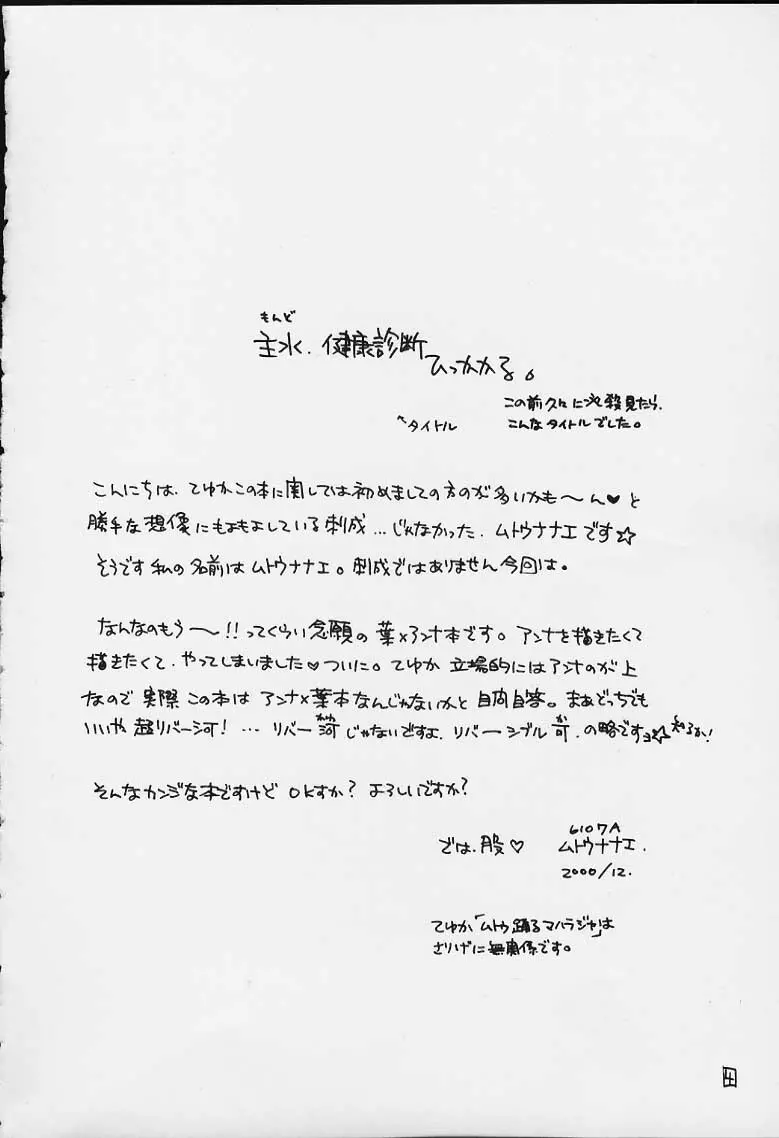 もんど
主水、健康診断
ひっかかる。
この前久々に必殺見たら、
こんなタイトルでした。
↖タイトル
こんにちは、てゆかこの本に関しては初めましての方のが多いかも〜ん♥と
勝手な想像にもよもよしている刺成…じゃなかった、ムトウナナエです☆
そうです私の名前はムトウナナエ。刺成ではありません今回は。
なんなのもう〜!!ってくらい念願の葉×アンナ本です。アンナを描きたくて
描きたくて、やってしまいました♥ついに。てゆか立場的にはアンナのが上
なので実際この本はアンナ×葉本なんじゃないかと自問自答。まあどっちでも
いいや超リバー河!…リバー河じゃないですよ、リバーシブル可、の略ですヨ☆知るか!
そんなカンジな本ですけどOKすか?よろしいですか?
では、股♡
6107A
ムトウナナエ.
2000/12.
てゆか「ムトゥ踊るマハラジャ」は
さりげに無関係です。
4